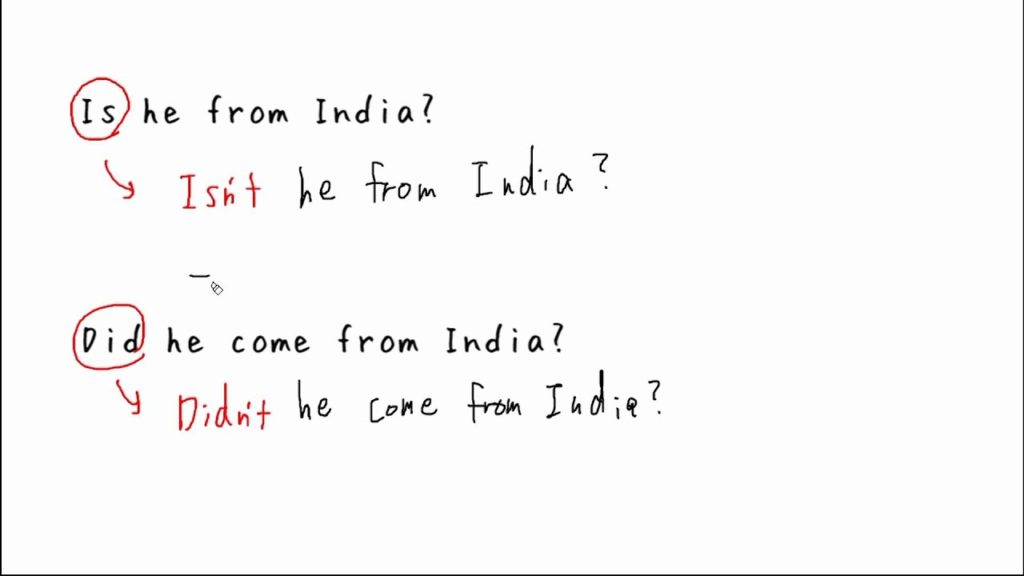 Is he from India?
Isn't he from India?
Did he come from India?
Didn't he come from India?